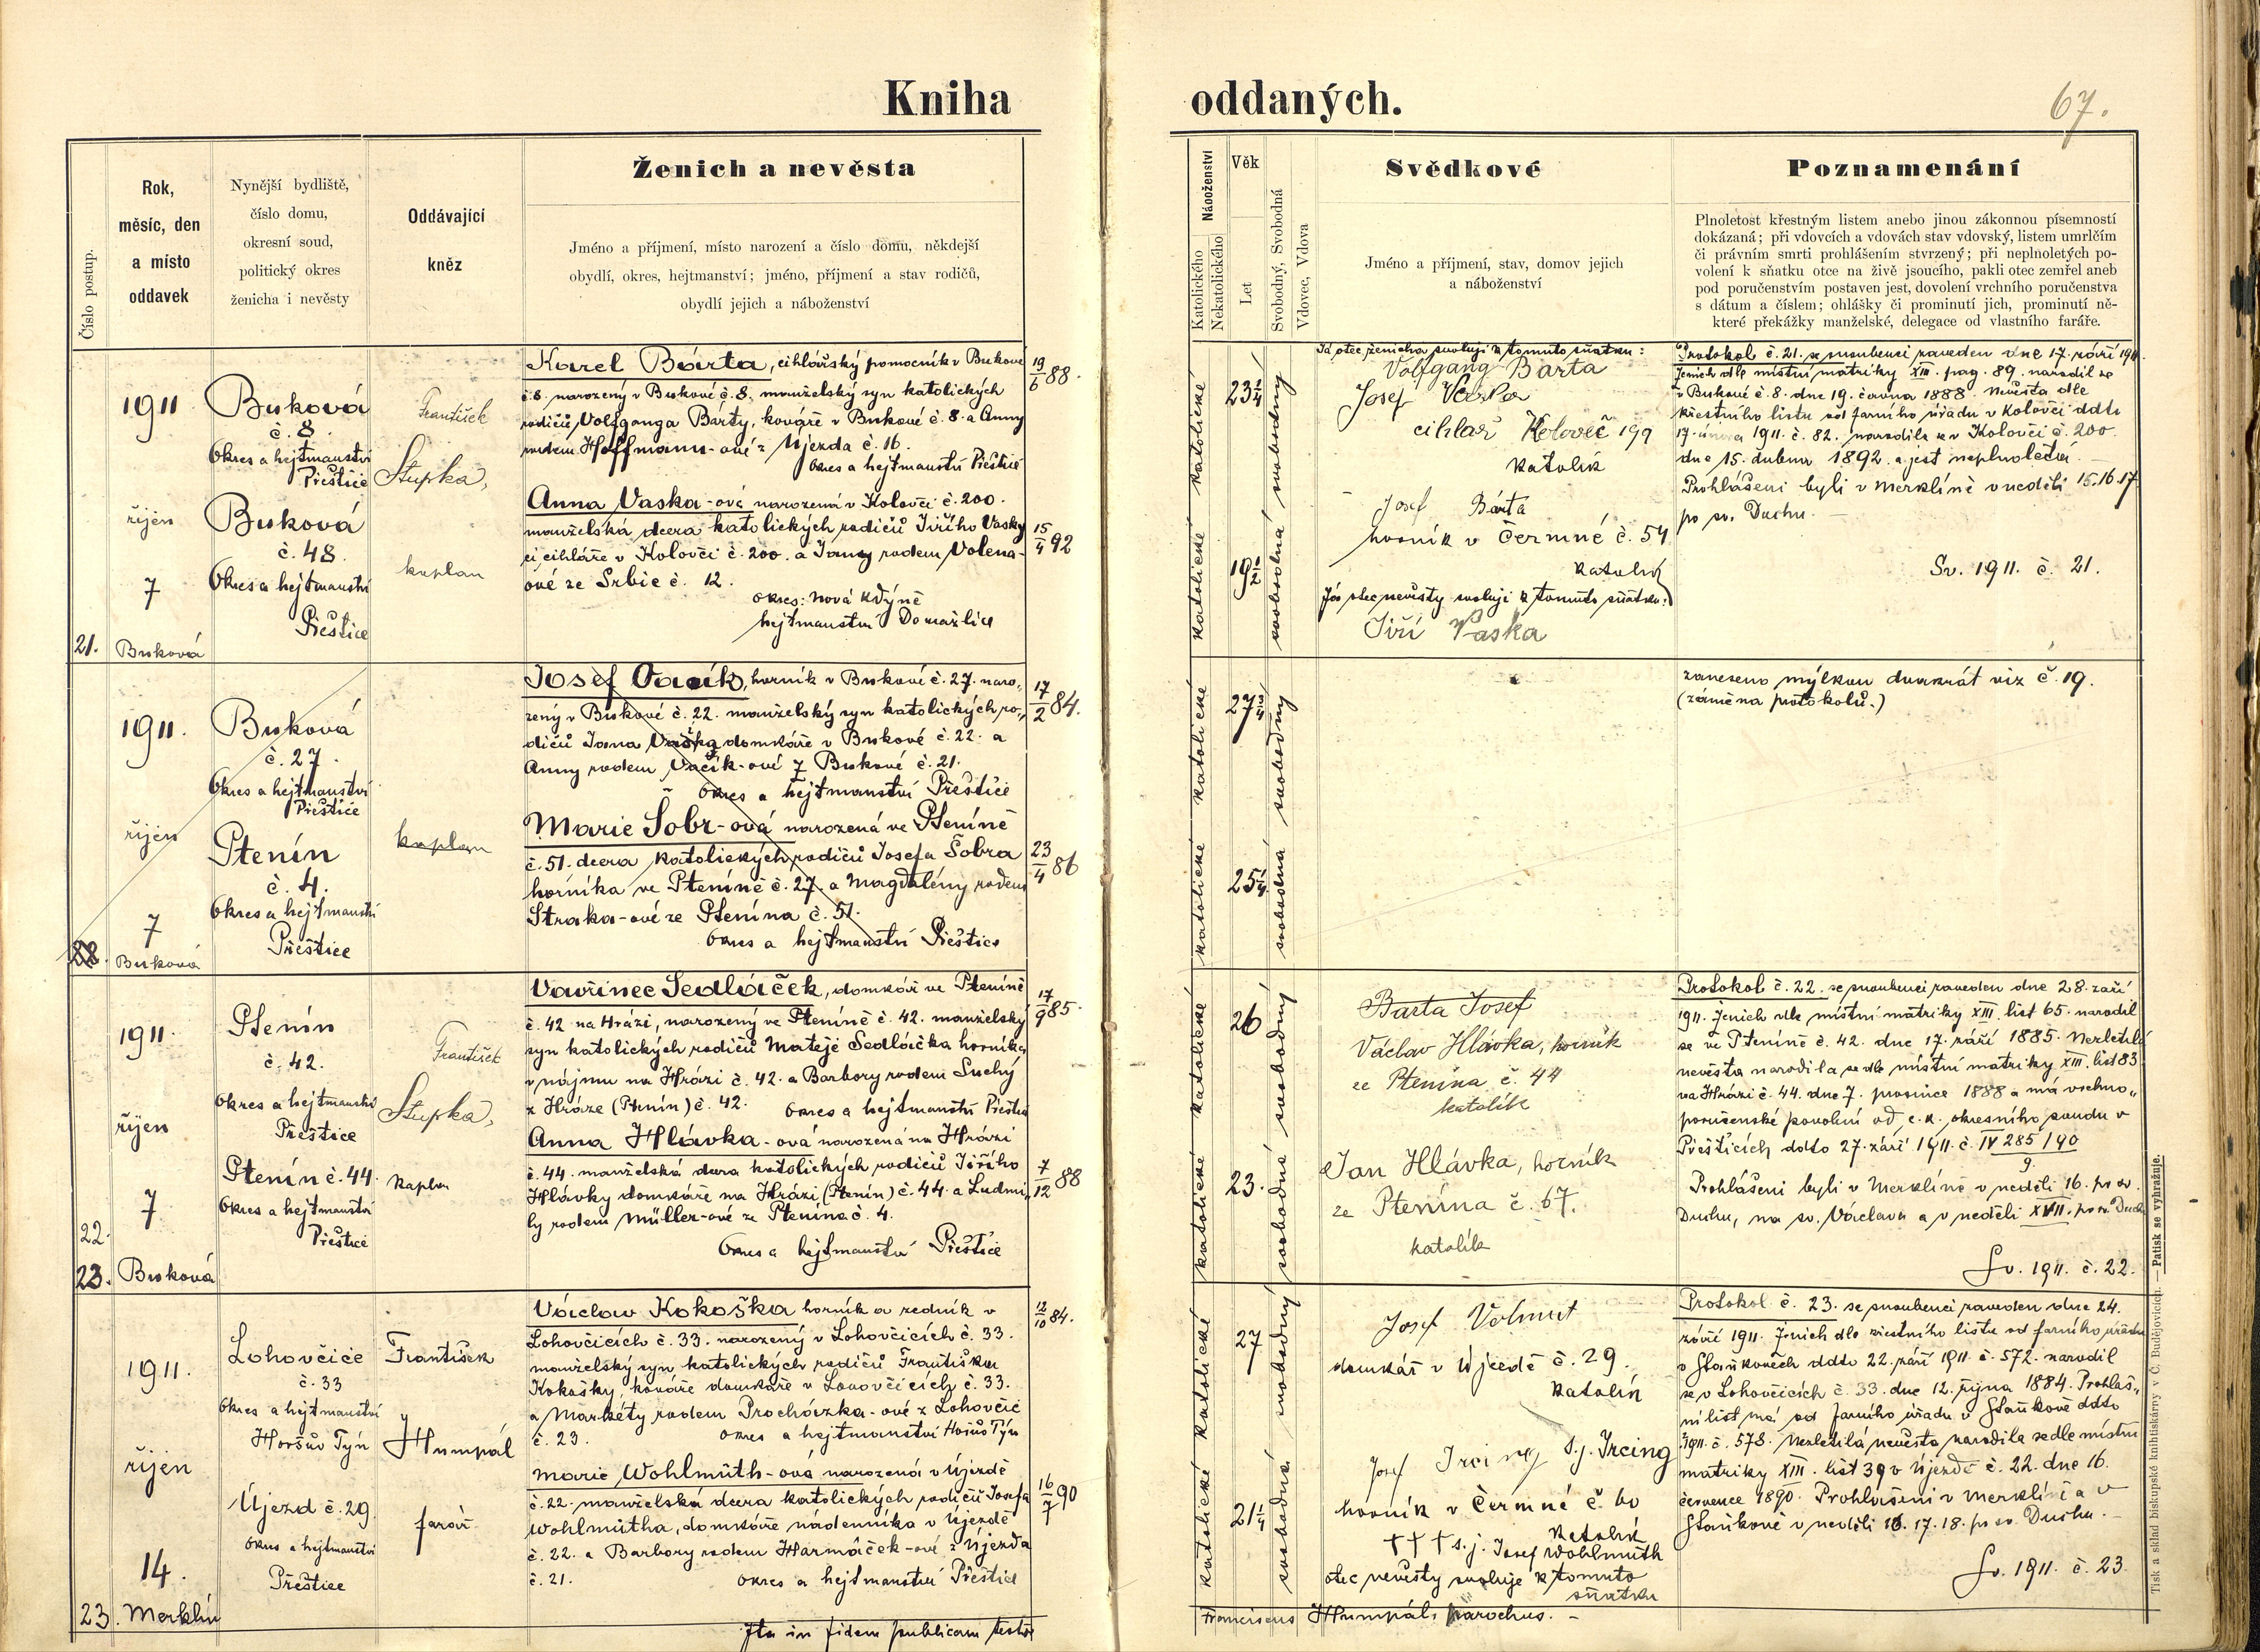 Kniha oddaných.
67.
Číslo postup.
Rok,
měsíc, den
a místo
oddavek
Nynější bydliště,
číslo domu,
okresní soud,
politický okres
ženicha i nevěsty
Oddávající
kněz
Ženich a nevěsta
Jméno a příjmení, místo narození a číslo domu, někdejší
obydlí, okres, hejtmanství; jméno, příjmení a stav rodičů,
obydlí jejich a náboženství
Katolického
Nekatolického
Náboženství
Věk
Let
Svobodný, Svobodná
Vdovec, Vdova
Svědkové
Jméno a příjmení, stav, domov jejich
a náboženství
Poznamenání
Plnoletost křestným listem anebo jinou zákonnou písemností
dokázaná; při vdovcích a vdovách stav vdovský, listem umrlčím
či právním smrti prohlášením stvrzený; při neplnoletých po-
volení k sňatku otce na živě jsoucího, pakli otec zemřel aneb
pod poručenstvím postaven jest, dovolení vrchního poručenstva
s dátum a číslem; ohlášky či prominutí jich, prominutí ně-
které překážky manželské, delegace od vlastního faráře.
21.
1911
říjen
7
Buková
Buková
č. 8.
Okres a hejtmanství
Přeštice
Buková
č. 48.
Okres a hejtmanství
Přeštice
František
Stupka,
kaplan
Karel Bárta, cihlářský pomocník v Bukové
č. 8. narozený v Bukové č. 8. manželský syn katolických
rodičů Volfganga Bárty, kováře v Bukové č. 8. a Anny
rodem Hoffmann-ové z Újezda č. 16.
Okres a hejtmanství Přeštice
19/6 88.
Anna Vaska-ová narozená v Koloveči č. 200.
manželská dcera katolických rodičů Jiřího Vasky
cihláře v Kolovči č. 200. a Jany rodem Volena-
ové ze Srbic č. 12.
okres: Nová Kdýně
hejtmanství Domažlice
15/4 92
katolické
katolické
23 1/4
19 1/2
svobodný
svobodná
Já otec ženicha svoluji k tomuto sňatku:
Volfgang Bárta
Josef Vaska
cihlář Koloveč 199
katolík
Josef Bárta
horník v Čermné č. 54
katolík
Já otec nevěsty svoluji k tomuto sňatku:
Jiří Vaska
Protokol č. 21. se snoubenci zaveden dne 17. září 1911.
Ženich dle místní matriky XIII. pag. 89. narodil se
v Bukové č. 8. dne 19. června 1888. Nevěsta dle
křestního listu od farního úřadu v Kolovči ddto
17. února 1911. č. 82. narodila se v Kolovči č. 200.
dne 15. dubna 1892. a jest neplnoletá.
Prohlášeni byli v Merklíně v neděli 15. 16. 17.
po sv. Duchu.
Sv. 1911. č. 21.
1911.
říjen
7
Buková
Buková
č. 27.
Okres a hejtmanství
Přeštice
Ptenín
č. 4.
Okres a hejtmanství
Přeštice
kaplan
Josef Vacík, horník v Bukové č. 27. naro-
zený v Bukové č. 22. manželský syn katolických ro-
dičů Jana domkáře v Bukové č. 22. a
Anny rodem Vacík-ové z Bukové č. 21.
Okres a hejtmanství Přeštice
17/2 84.
Marie Šobr-ová narozená ve Pteníně
č. 51. dcera katolických rodičů Josefa Šobra
horníka ve Pteníně č. 27. a Magdalény rodem
Straka-ové ze Ptenína č. 51.
Okres a hejtmanství Přeštice
23/4 86
katolické
katolické
27 3/4
25 1/4
svobodný
svobodná
zaneseno mýlkou dvakrát viz č. 19.
(záměna protokolů.)
22.
23.
1911.
říjen
7
Buková
Ptenín
č. 42.
Okres a hejtmanství
Přeštice
Ptenín č. 44.
Okres a hejtmanství
Přeštice
František
Stupka,
kaplan
Vavřinec Sedláček, domkář ve Pteníně
č. 42 na Hrázi, narozený ve Pteníně č. 42. manželský
syn katolických rodičů Matěje Sedláčka horníka
v nájmu na Hrázi č. 42. a Barbory rodem Suchý
z Hráze (Ptenín) č. 42. Okres a hejtmanství Přeštice
17/9 85.
Anna Hlávka-ová narozená na Hrázi
č. 44. manželská dcera katolických rodičů Jiřího
Hlávky domkáře na Hrázi (Ptenín) č. 44. a Ludmi-
ly rodem Müller-ové ze Ptenína č. 4.
Okres a hejtmanství Přeštice
7/12 88
katolické
katolické
26
23.
svobodný
svobodná
Barta Josef
Václav Hlávka, horník
ze Ptenína č. 44
katolík
Jan Hlávka, horník
ze Ptenína č. 67.
katolík
Protokol č. 22. se snoubenci zaveden dne 28. září
1911. Ženich dle místní matriky XIII. list 65. narodil
se ve Pteníně č. 42. dne 17. září 1885. Nezletilá
nevěsta narodila se dle místní matriky XIII. list 83.
na Hrázi č. 44. dne 7. prosince 1888 a má vrchno-
poručenské povolení od c. k. okresního soudu v
Přešticích ddto 27. září 1911. č. IV 285/90
9.
Prohlášeni byli v Merklíně v neděli 16. po sv.
Duchu, na sv. Václava a v neděli XVII. po sv. Duchu
Sv. 1911. č. 22.
23.
1911.
říjen
14.
Merklín
Lohovčice
č. 33
Okres a hejtmanství
Horšův Týn
Újezd č. 29.
Okres a hejtmanství
Přeštice
František
Humpál
farář.
Václav Kokoška horník a zedník v
Lohovčicích č. 33. narozený v Lohovčicích č. 33.
manželský syn katolických rodičů Františka
Kokošky, kováře domkáře v Lohovčicích č. 33.
a Markéty rodem Procházka-ové z Lohovčic
č. 23. Okres a hejtmanství Horšův Týn
12/10 84.
Marie Wohlmüth-ová narozená v Újezdě
č. 22. manželská dcera katolických rodičů Josefa
Wohlmütha, domkáře nádenníka v Újezdě
č. 22. a Barbory rodem Harmáček-ové z Újezda
č. 21. Okres a hejtmanství Přeštice
16/7 90
katolické
katolické
27
21 1/4
svobodný
svobodná
Josef Volmut
domkář v Újezdě č. 29.
katolík
Josef Ircing s. j. Ircing
horník v Čermné č. 60
katolík
††† s. j. Josef Wohlmüth
otec nevěsty svoluje k tomuto
sňatku
Protokol č. 23. se snoubenci zaveden dne 24.
září 1911. Ženich dle křestního listu od farního úřadu
v Staňkovech ddto 22. září 1911. č. 572. narodil
se v Lohovčicích č. 33. dne 12. října 1884. Prohláš-
ní list má od farního úřadu v Staňkově ddto
1911. č. 578. Nezletilá nevěsta narodila se dle místní
matriky XIII. list 39 v Újezdě č. 22. dne 16.
července 1890. Prohlášeni v Merklíně a v
Staňkově v neděli 16. 17. 18. po sv. Duchu.
Sv. 1911. č. 23.
Ita in fidem publicam testor
Franciscus Humpál, parochus.
Tisk a sklad biskupské knihtiskárny v Č. Budějovicích. — Patisk se vyhražuje.